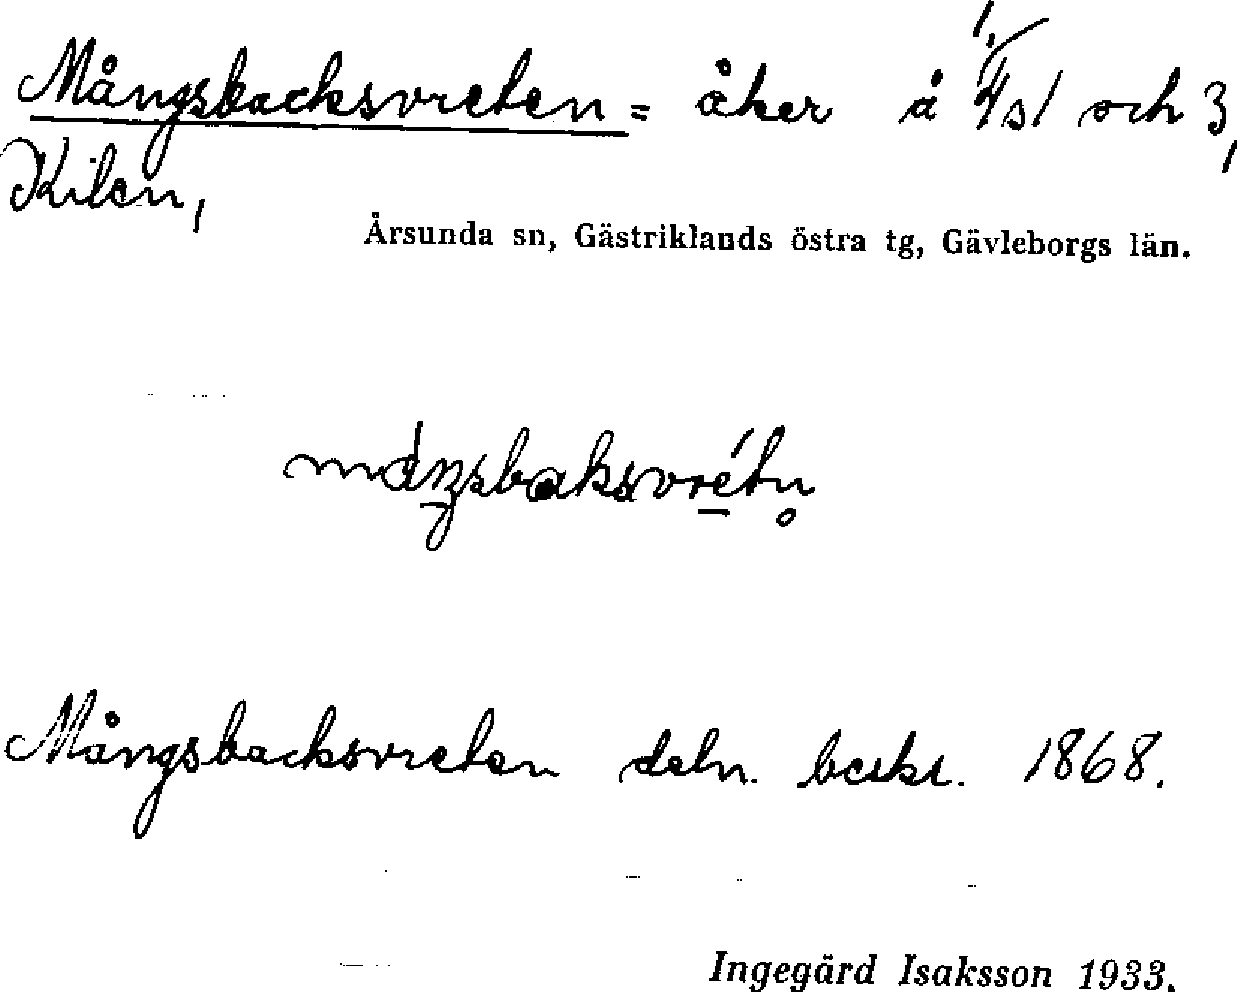 Mångsbacksvreten = åker å 1/4 s1 och 3,
Kilen,
Årsunda sn, Gästriklands östra tg, Gävleborgs län.
Mångsbacksvreten deln. beskr. 1868.
Ingegärd Isaksson 1933.